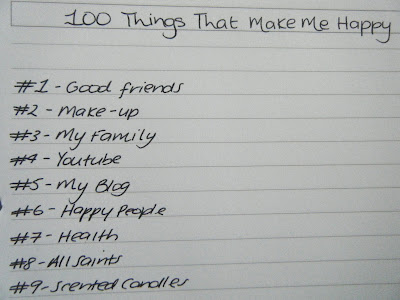 100 Things That Make Me Happy
#1 - Good friends
#2 - Make-up
#3 - My Family
#4 - Youtube
#5 - My Blog
#6 - Happy People
#7 - Health
#8 - All Saints
#9 - Scented Candles